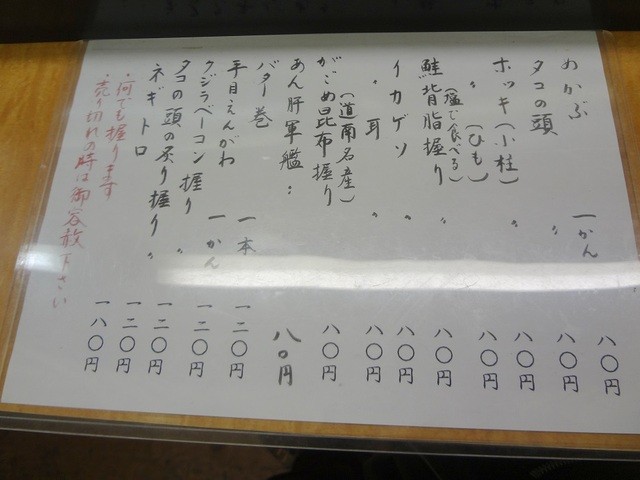 めかぶ 一かん 八〇円
タコの頭 〃 八〇円
ホッキ(小柱) 〃 八〇円
〃 (ひも) 〃 八〇円
鮭背脂握り 〃 八〇円
(塩で食べる)
イカゲソ 〃 八〇円
〃 耳 〃 八〇円
(道南名産)
がごめ昆布握り 八〇円
あん肝軍艦: 八〇円
バター巻 一本 一二〇円
平目えんがわ 一かん 一二〇円
クジラベーコン握り 〃 一二〇円
タコの頭の炙り握り 〃 一二〇円
ネギトロ 一八〇円
・何でも握ります
・売り切れの時は御容赦下さい